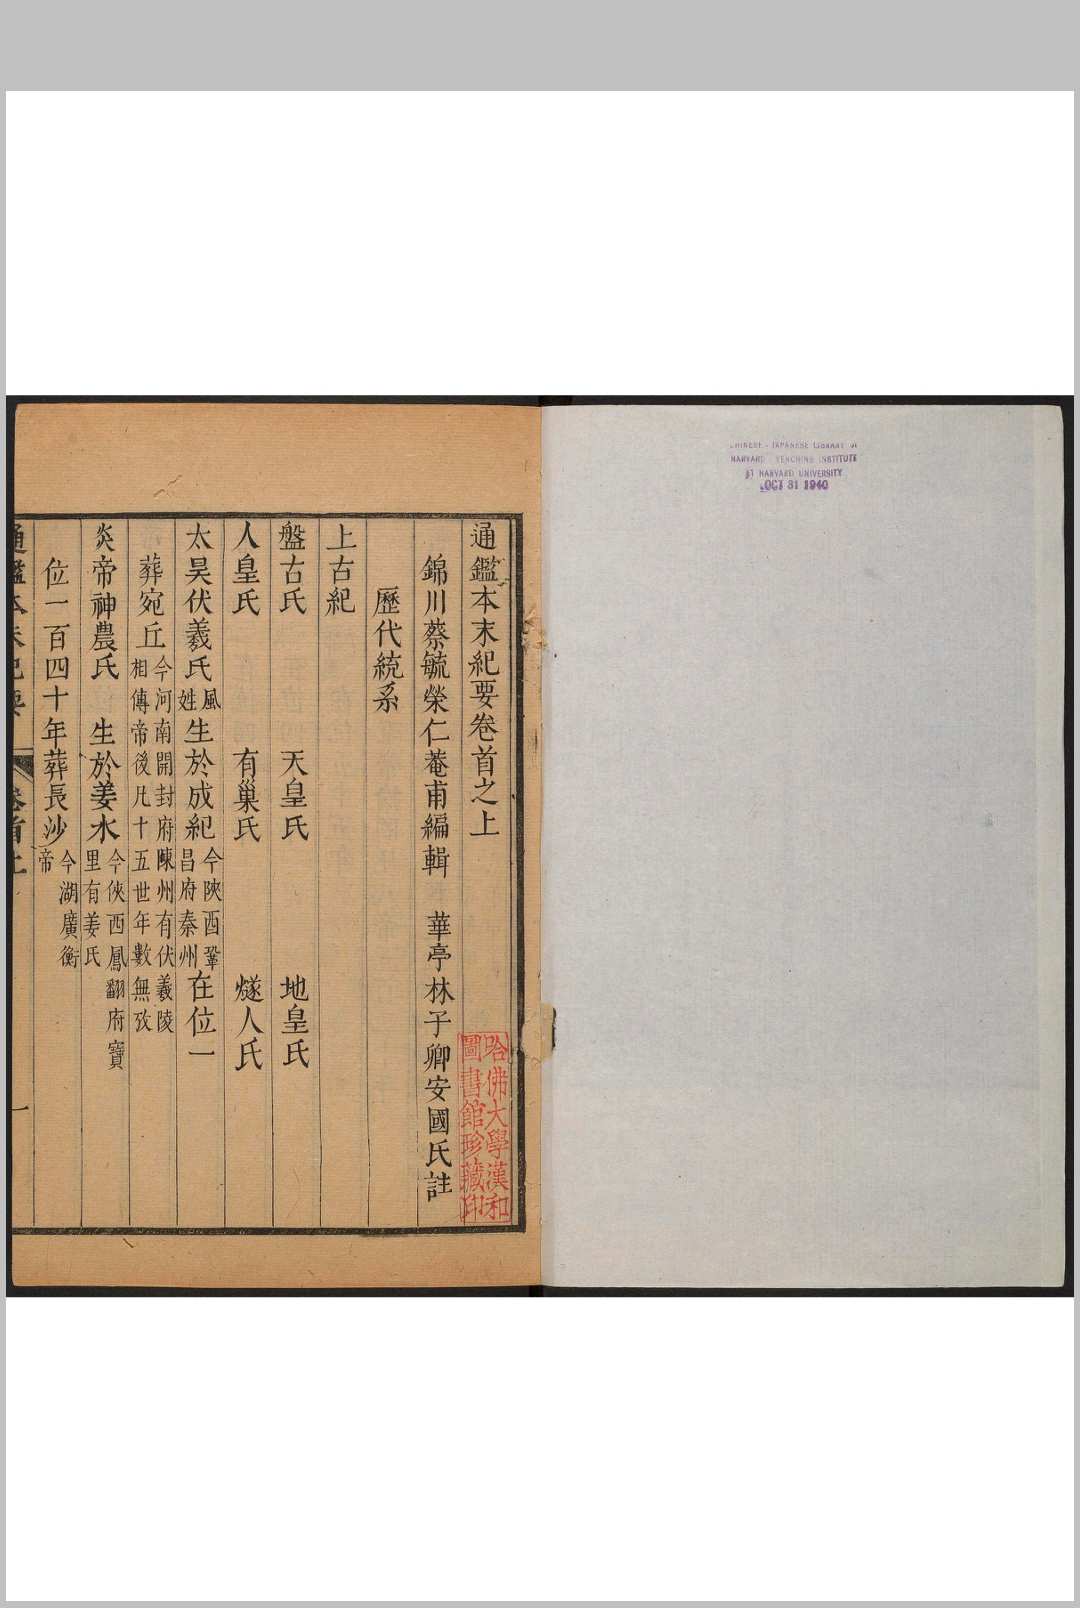 CHINESE - JAPANESE LIBRARY OF
HARVARD - YENCHING INSTITUTE
AT HARVARD UNIVERSITY
OCT 31 1940
通鑑本末紀要卷首之上
錦川蔡毓榮仁菴甫編輯 華亭林子卿安國氏註
歷代統系
上古紀
盤古氏 天皇氏 地皇氏
人皇氏 有巢氏 燧人氏
太昊伏羲氏風姓生於成紀今陝西鞏昌府秦州在位一
葬宛丘今河南開封府陳州有伏羲陵相傳帝後凡十五世年數無攷
炎帝神農氏 生於姜水今陝西鳳翻府寶里有姜氏
位一百四十年葬長沙今湖廣衡帝
通鑑本末紀要 卷首上 一
哈佛大學漢和
圖書館珍藏印